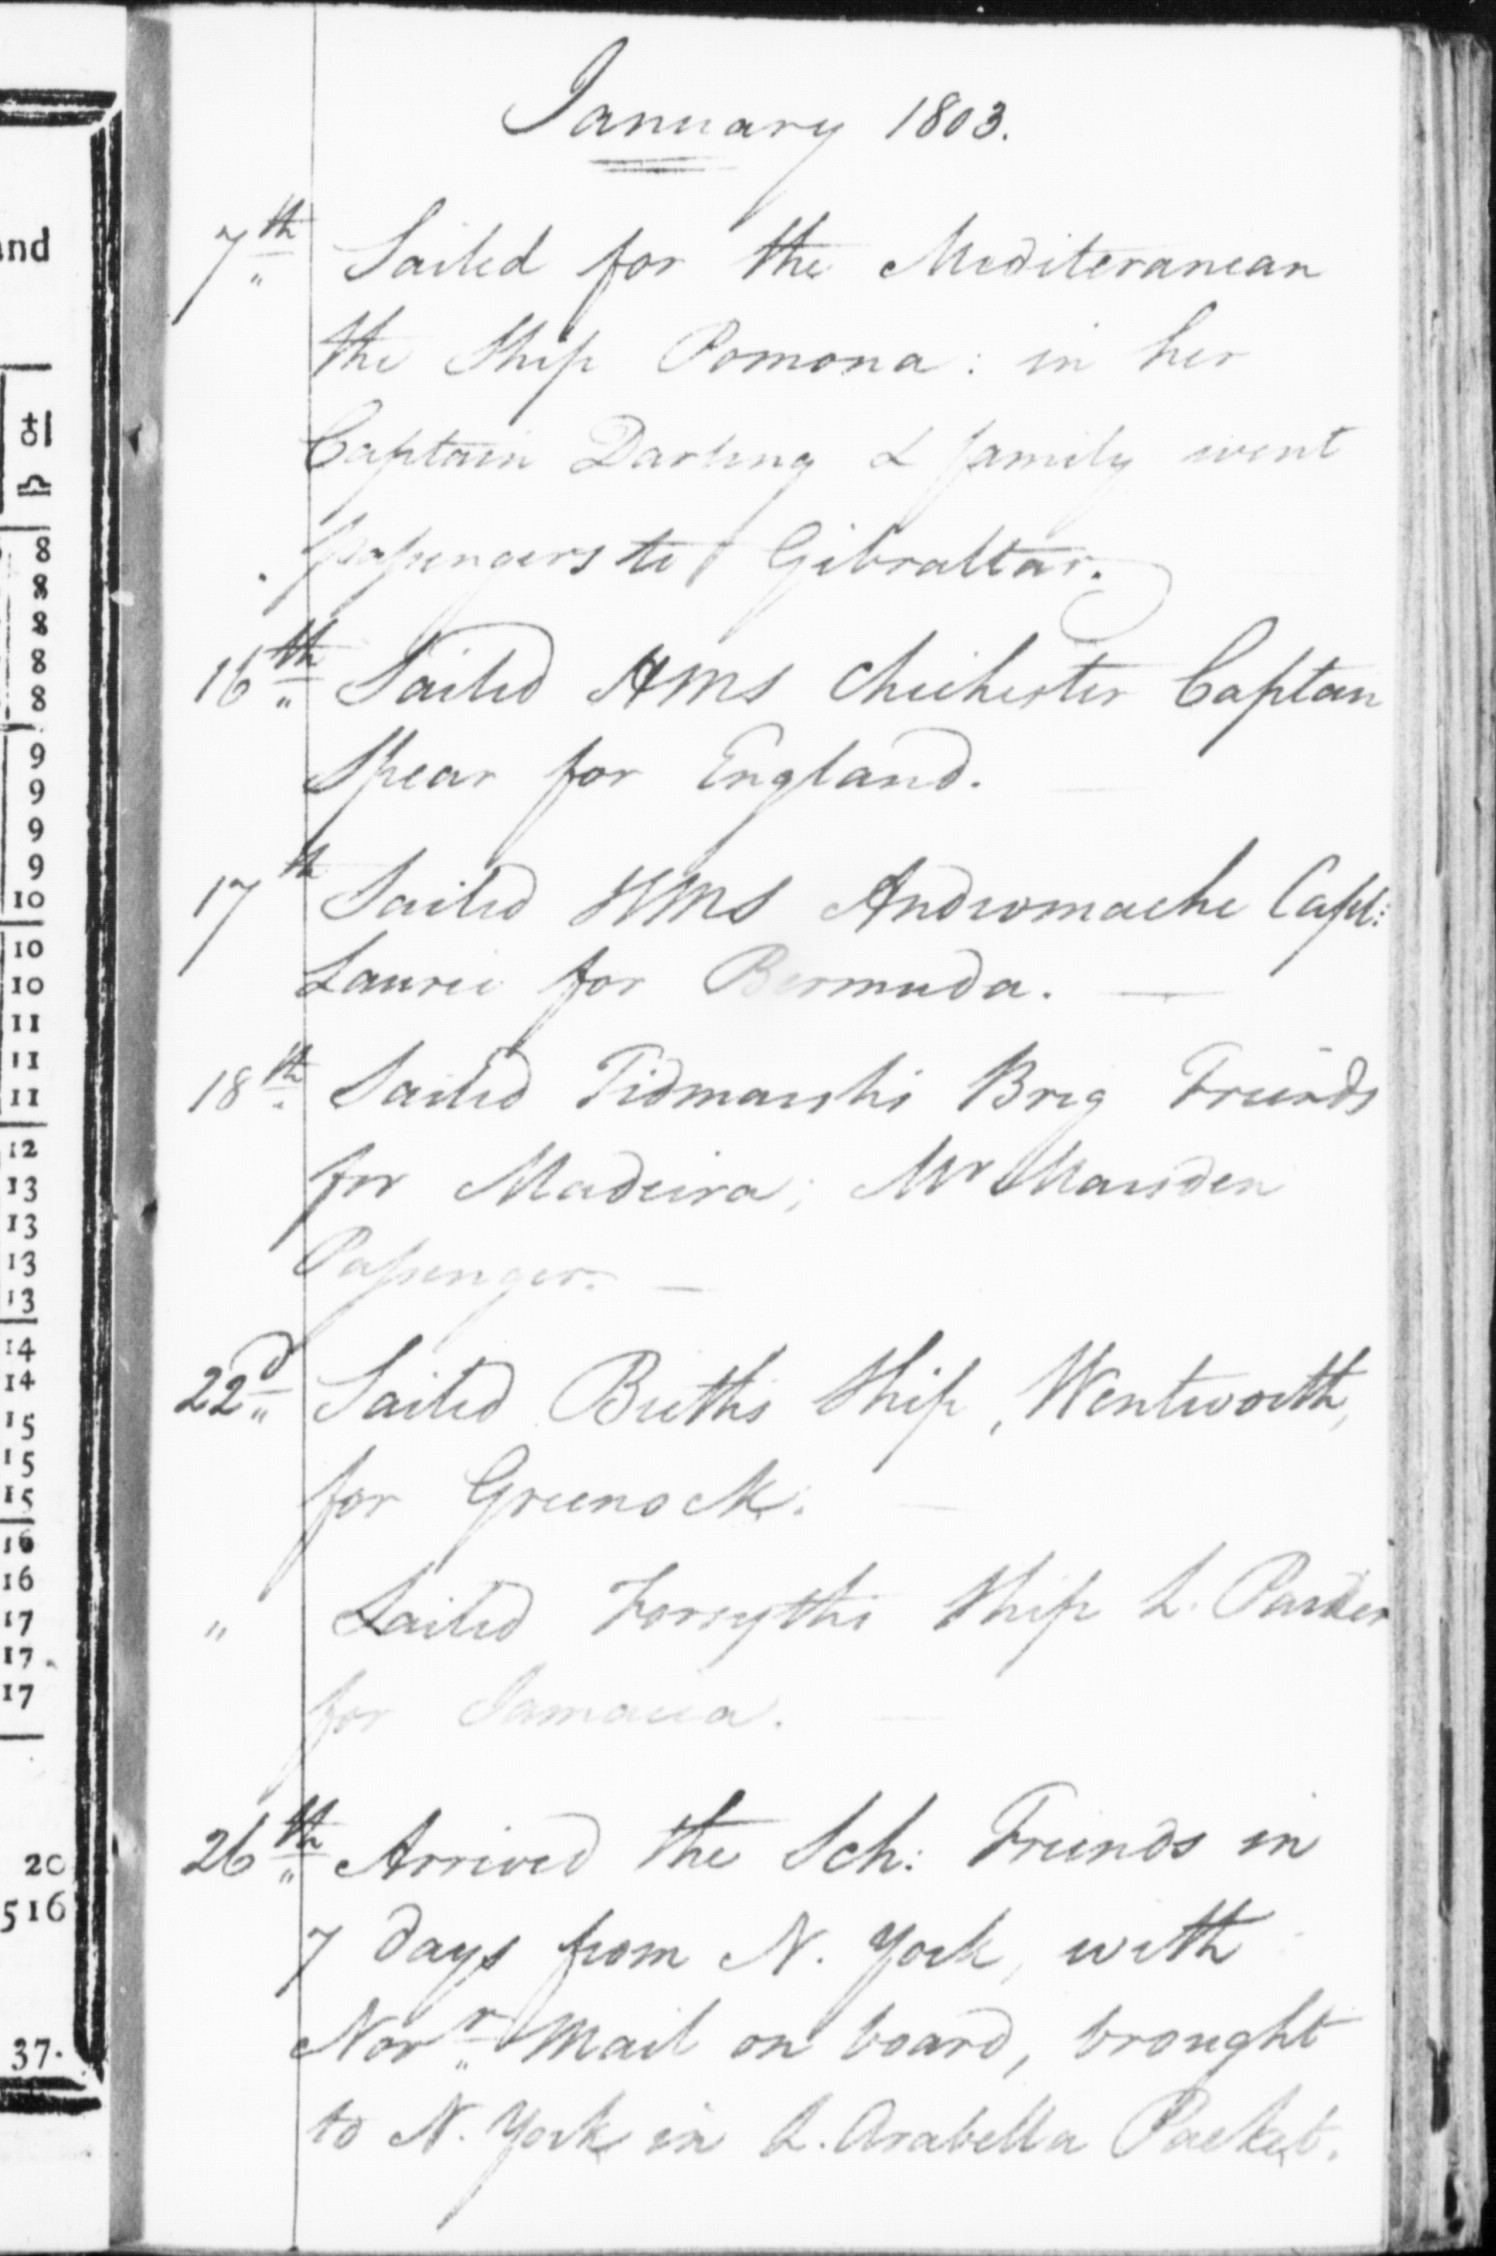 January 1803.
7th Sailed for the Mediteranean
the Ship Pomona: in her
Captain Darling & family went
passengers to Gibraltar.
16th Sailed HMS Chichester Captain
Spear for England.
17th Sailed HMS Andromache Capt:
Laurie for Bermuda.
18th Sailed Tidmarshs Brig Friends
for Madeira; Mr Marsden
Passenger.
22d Sailed Ship, Wentworth,
for Greenock.
" Sailed Forsyths Ship L. Parker
for Jamaica.
26th Arrived the Sch: Friends in
7 days from N. York, with
Novr Mail on board, brought
to N. York in L. Arabella Packet.
and
8
8
8
8
8
9
9
9
9
10
10
10
11
11
11
12
13
13
13
13
14
14
15
15
15
16
16
17
17
17
20
516
37.